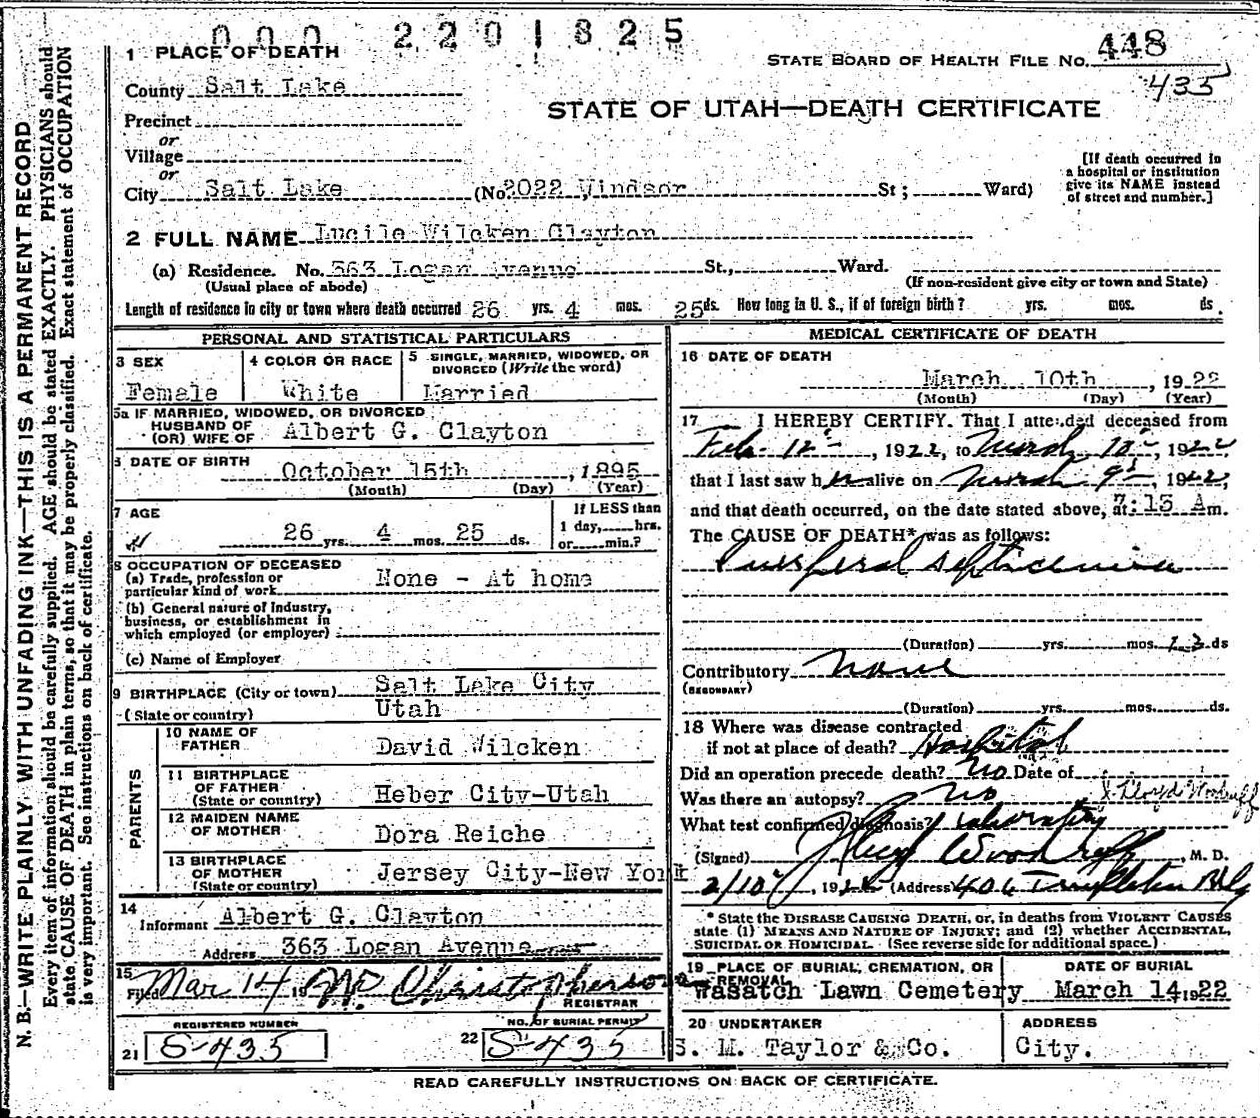 000 2201825
1 PLACE OF DEATH
STATE BOARD OF HEALTH FILE No. 448
435
County Salt Lake
STATE OF UTAH—DEATH CERTIFICATE
Precinct
or
Village
or
City Salt Lake (No 2022 Windsor St; Ward)
[If death occurred in
a hospital or institution
give its NAME instead
of street and number.]
2 FULL NAME Lucile Wilcken Clayton
(a) Residence. No. 363 Logan Avenue St., Ward.
(Usual place of abode) (If non-resident give city or town and State)
Length of residence in city or town where death occurred 26 yrs. 4 mos. 25 ds. How long in U. S., if of foreign birth? yrs. mos. ds.
PERSONAL AND STATISTICAL PARTICULARS
3 SEX
Female
4 COLOR OR RACE
White
5 SINGLE, MARRIED, WIDOWED, OR
DIVORCED (Write the word)
Married
5a IF MARRIED, WIDOWED, OR DIVORCED
HUSBAND OF
(OR) WIFE OF Albert G. Clayton
6 DATE OF BIRTH
October 15th, 1895
(Month) (Day) (Year)
7 AGE
26 yrs. 4 mos. 25 ds.
If LESS than
1 day, hrs.
or min.?
8 OCCUPATION OF DECEASED
(a) Trade, profession or
particular kind of work None - At home
(b) General nature of Industry,
business, or establishment in
which employed (or employer)
(c) Name of Employer
9 BIRTHPLACE (City or town) Salt Lake City
(State or country) Utah
PARENTS
10 NAME OF
FATHER David Wilcken
11 BIRTHPLACE
OF FATHER
(State or country) Heber City-Utah
12 MAIDEN NAME
OF MOTHER Dora Reiche
13 BIRTHPLACE
OF MOTHER
(State or country) Jersey City-New York
14
Informant Albert G. Clayton
Address 363 Logan Avenue
15
Filed Mar 14 19 Christopherson
REGISTRAR
REGISTERED NUMBER
21 S-435
NO. OF BURIAL PERMIT
22 S-435
MEDICAL CERTIFICATE OF DEATH
16 DATE OF DEATH
March 10th, 1922
(Month) (Day) (Year)
17 I HEREBY CERTIFY. That I attended deceased from
Feb. 12, 1922, to March 10, 1922,
that I last saw her alive on March 9, 1922,
and that death occurred, on the date stated above, at 7:15 Am.
The CAUSE OF DEATH* was as follows:
Puerperal septicemia
(Duration) yrs. mos. 23 ds
Contributory None
(SECONDARY)
(Duration) yrs. mos. ds.
18 Where was disease contracted
if not at place of death? Hospital
Did an operation precede death? No Date of
Was there an autopsy? No
What test confirmed diagnosis? Laboratory
J. Lloyd Woodruff
(Signed) Woodruff, M. D.
2/10, 1922 (Address 406 Templeton Bldg
* State the DISEASE CAUSING DEATH, or, in deaths from VIOLENT CAUSES
state (1) MEANS AND NATURE OF INJURY; and (2) whether ACCIDENTAL,
SUICIDAL OR HOMICIDAL. (See reverse side for additional space.)
19 PLACE OF BURIAL, CREMATION, OR
REMOVAL
Wasatch Lawn Cemetery
DATE OF BURIAL
March 14, 1922
20 UNDERTAKER
S. M. Taylor & Co.
ADDRESS
City.
READ CAREFULLY INSTRUCTIONS ON BACK OF CERTIFICATE.
N. B.—WRITE PLAINLY WITH UNFADING INK—THIS IS A PERMANENT RECORD
Every item of information should be carefully supplied. AGE should be stated EXACTLY. PHYSICIANS should
state CAUSE OF DEATH in plain terms, so that it may be properly classified. Exact statement of OCCUPATION
is very important. See instructions on back of certificate.